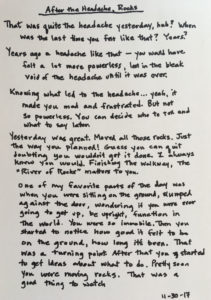 After the Headache, Rocks
That was quite the headache yesterday, huh? When
was the last time you felt like that? Years?
Years ago a headache like that - you would have
felt a lot more powerless, lost in the bleak
void of the headache until it was over.
Knowing what led to the headache... yeah, it
made you mad and frustrated. But not
so powerless. You can decide who to tell and
what to say later.
Yesterday was great. Moved all those rocks. Just
the way you planned! Guess you can quit
doubting you wouldn't get it done. I always
knew you would. Finishing the walkway, the
"River of Rocks" matters to you.
One of my favorite parts of the day was
when you were sitting on the ground, slumped
against the door, wondering if you were ever
going to get up, be upright, function in
the world. You were so immobile. Then you
started to notice how good it felt to be
on the ground, how long it'd been. That
was a turning point. After that you started
to get ideas about what to do. Pretty soon
you were moving rocks. That was a
good thing to watch
11-30-17